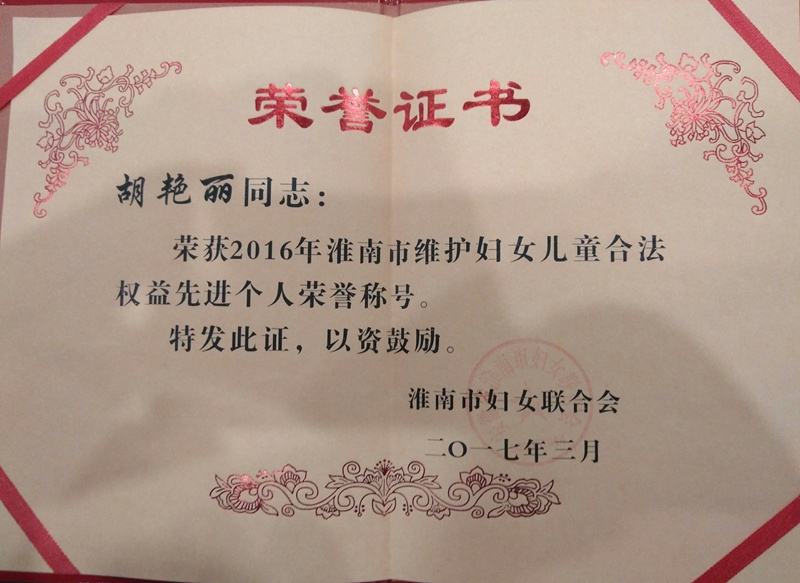 荣誉证书
胡艳丽同志：
荣获2016年淮南市维护妇女儿童合法
权益先进个人荣誉称号。
特发此证，以资鼓励。
淮南市妇女联合会
二〇一七年三月